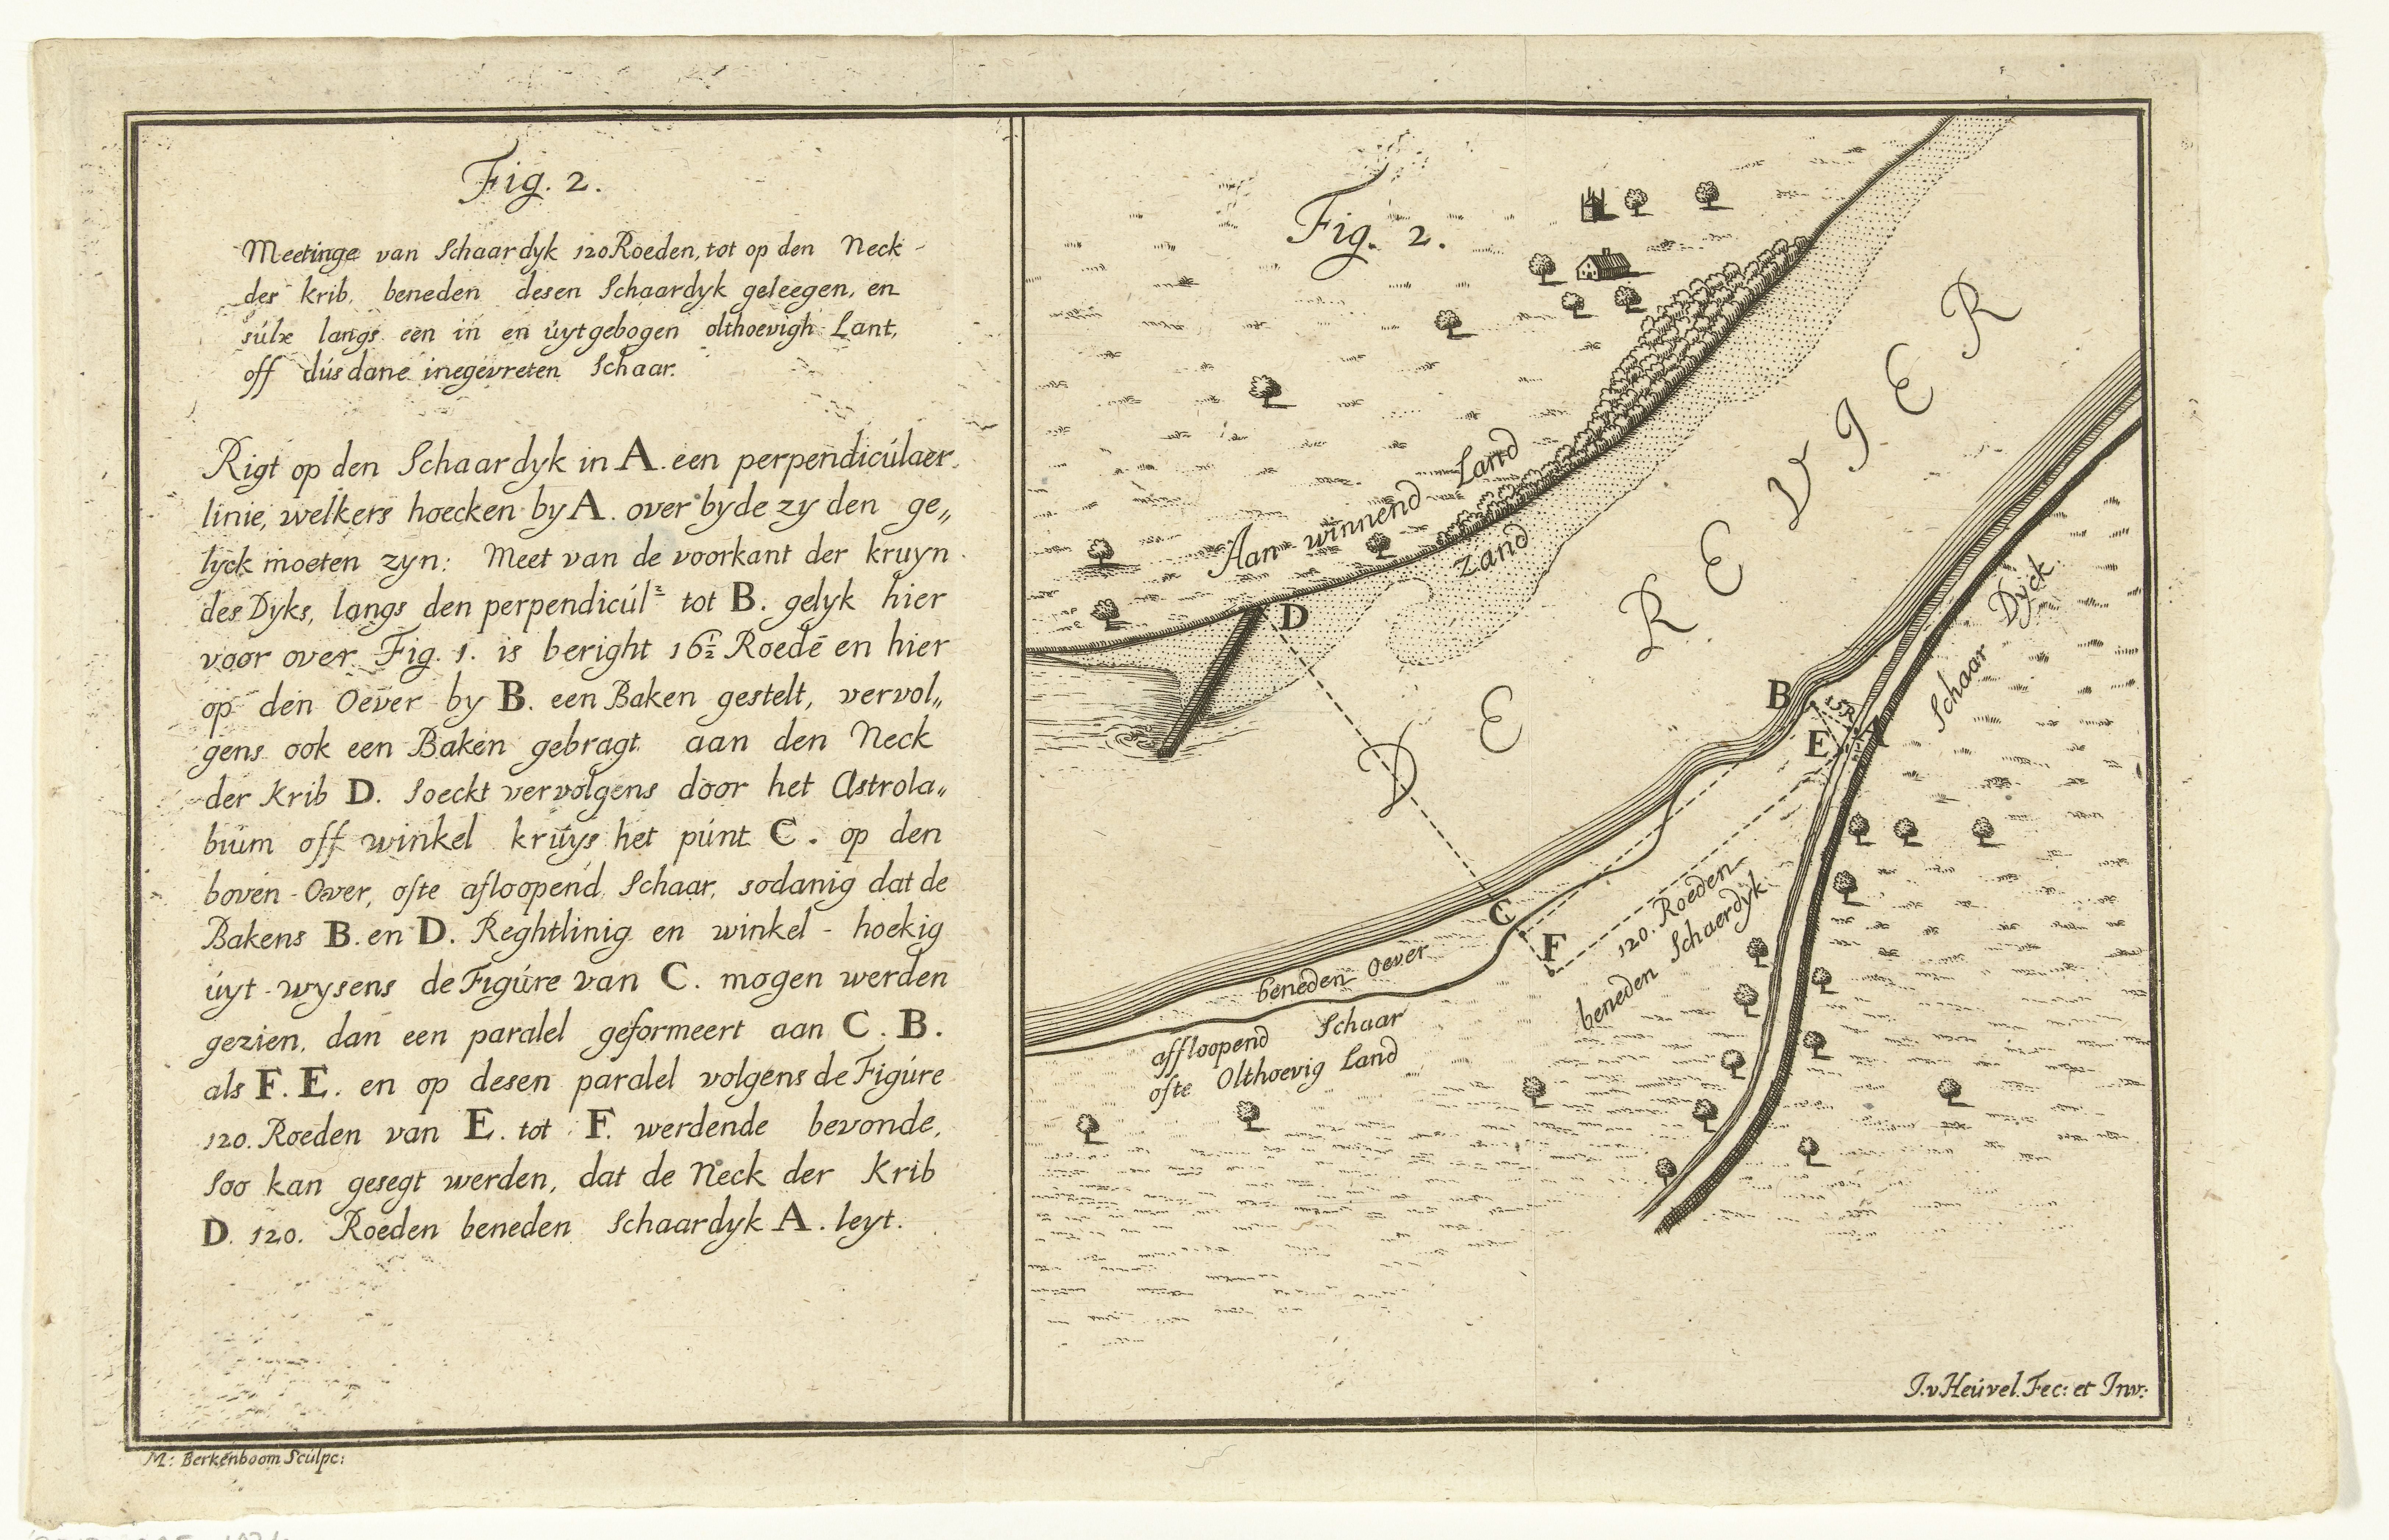 Fig. 2.
Meetinge van Schaardyk 120 Roeden, tot op den Neck
der krib, beneden desen Schaardyk geleegen, en
súlx langs een in en úytgebogen olthoevigh Lant,
off dúsdane inegevreten Schaar.
Rigt op den Schaardyk in A. een perpendicúlaer
linie, welkers hoecken by A. over byde zy den ge„
lyck moeten zyn: Meet van de voorkant der kruyn
des Dyks, langs den perpendicúlr tot B. gelyk hier
voor over Fig. 1. is beright 16½ Roedē en hier
op den Oever by B. een Baken gestelt, vervol„
gens ook een Baken gebragt aan den Neck
der Krib D. Soeckt vervolgens door het Astrola„
bium off winkel krúys het púnt C. op den
boven-Over, ofte afloopend Schaar, sodanig dat de
Bakens B. en D. Reghtlinig en winkel-hoekig
úyt-wysens de Figúre van C. mogen werden
gezien, dan een paralel geformeert aan C. B.
als F. E. en op desen paralel volgens de Figúre
120. Roeden van E. tot F. werdende bevonde,
Soo kan gesegt werden, dat de Neck der Krib
D. 120. Roeden beneden Schaardyk A. leyt.
M: Berkenboom Sculpc:
Fig. 2.
Aan-winnend Land
Zand
DE REVIER
D
B
15R
A
E
Schaar Dyck
C
F
120. Roeden
beneden Schaerdyk.
beneden Oever
affloopend Schaar
ofte Olthoevig Land
J. v Heúvel. Fec: et Inv: